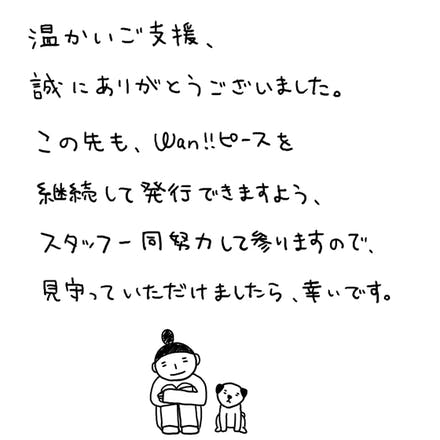 温かいご支援、
誠にありがとうございました。
この先も、Wan!!ピースを
継続して発行できますよう、
スタッフ一同努力して参りますので、
見守っていただけましたら、幸いです。